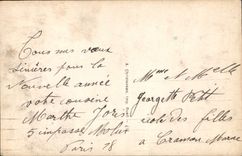 Tous mes vœux
sincères pour la
Nouvelle année
votre cousine
Marthe
5 impasse
Paris 18
Mme et Melle
Georgette Petit
école des filles
à Marne